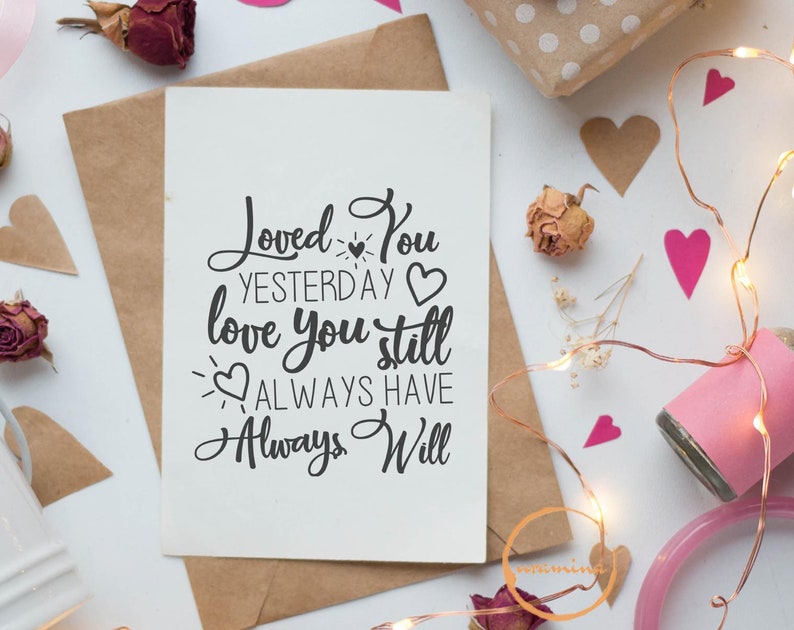 Loved You
YESTERDAY
love You still
ALWAYS HAVE
Always Will